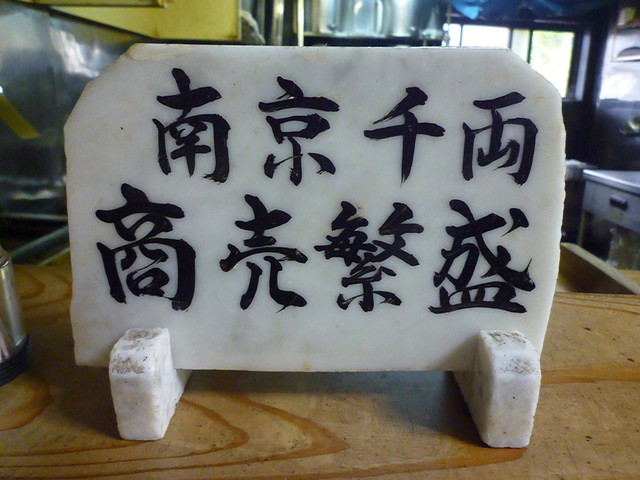 南京千両
商売繁盛